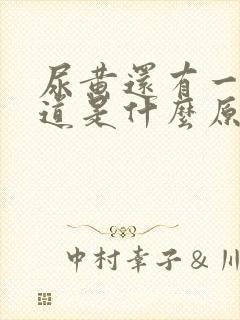 尿黄還有一
道是什麼原
中村幸子 & 川